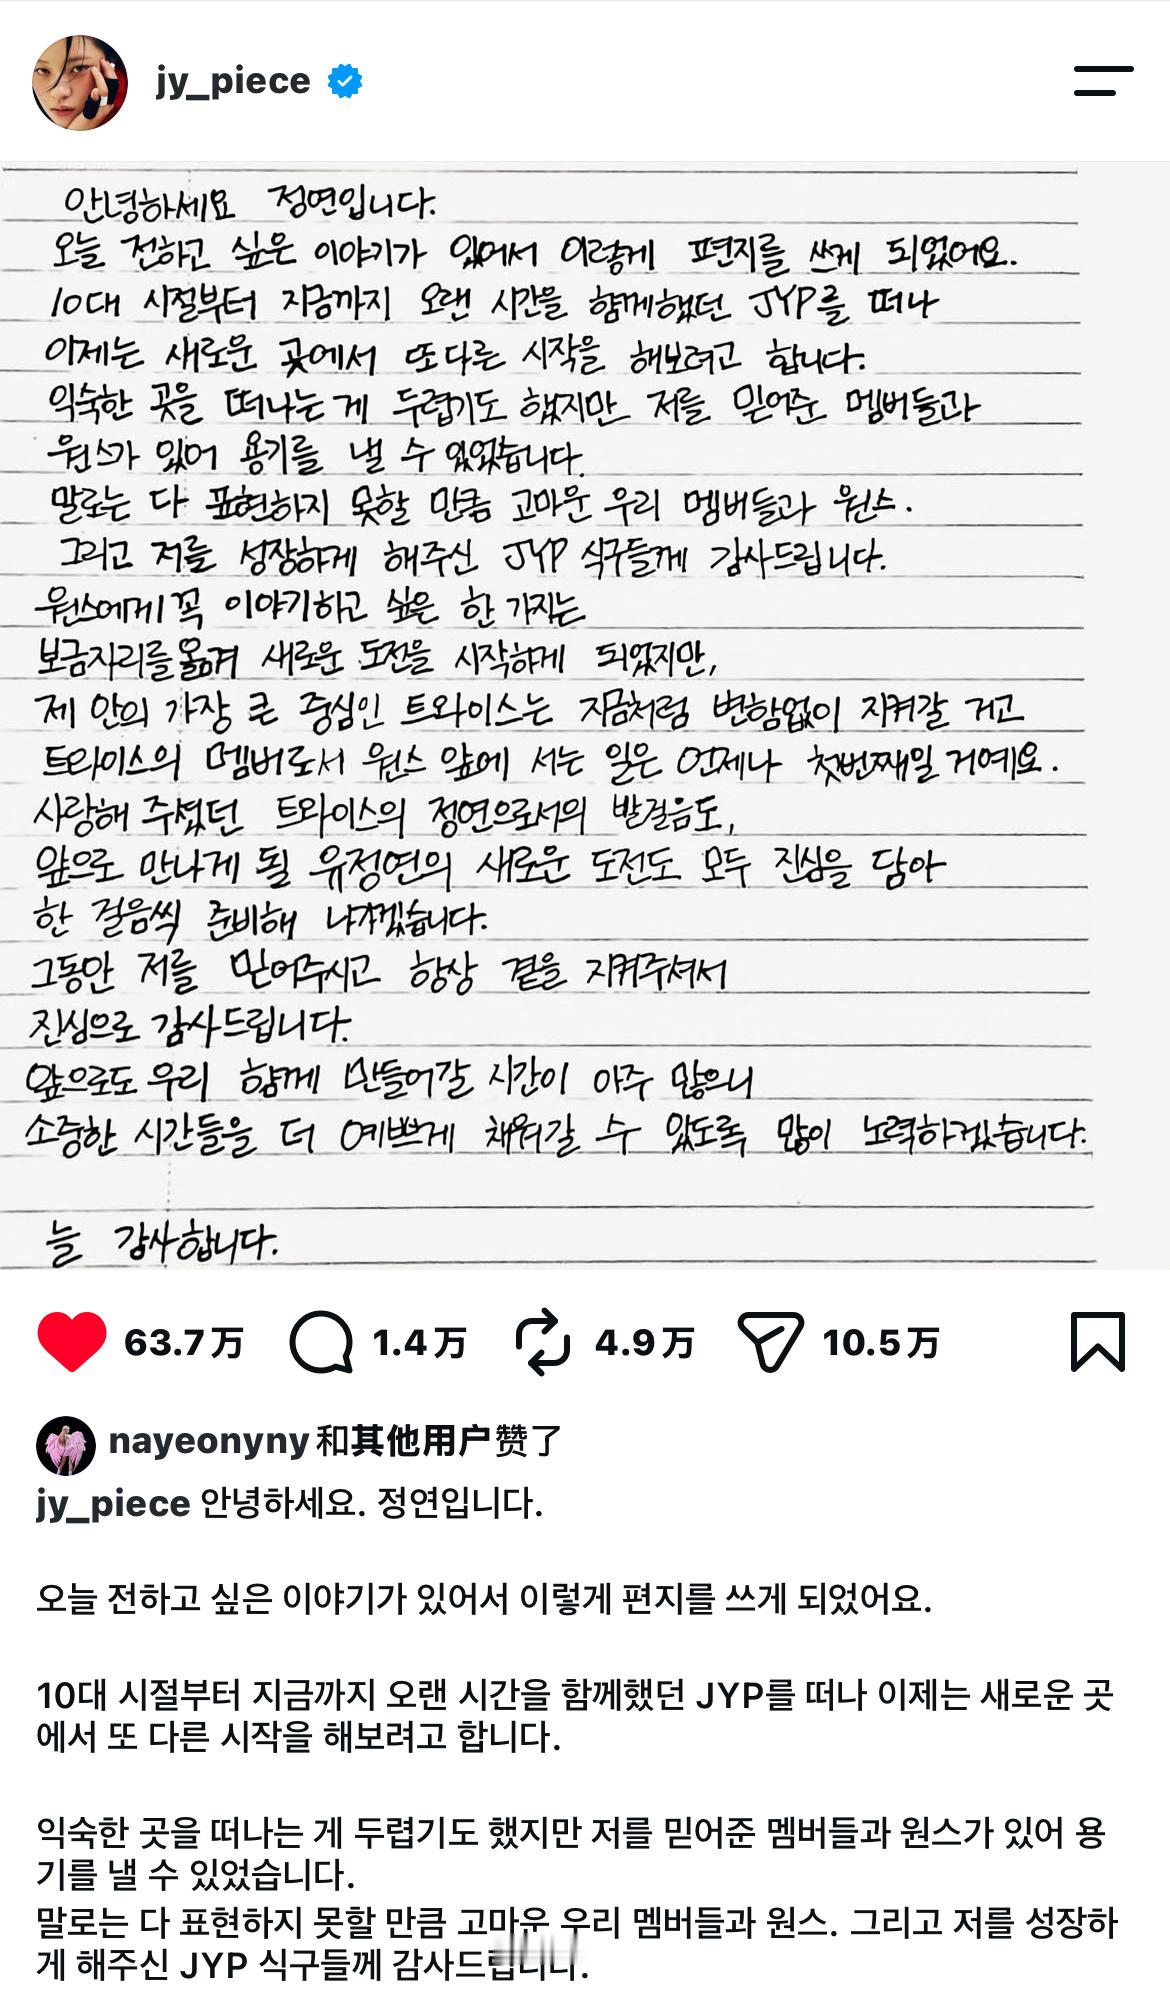 jy_piece
안녕하세요 정연입니다.
오늘 전하고 싶은 이야기가 있어서 이렇게 편지를 쓰게 되었어요.
10대 시절부터 지금까지 오랜 시간을 함께했던 JYP를 떠나
이제는 새로운 곳에서 또다른 시작을 해보려고 합니다.
익숙한 곳을 떠나는게 두렵기도 했지만 저를 믿어준 멤버들과
원스가 있어 용기를 낼 수 있었습니다.
말로는 다 표현하지 못할 만큼 고마운 우리 멤버들과 원스.
그리고 저를 성장하게 해주신 JYP 식구들께 감사드립니다.
원스에게 꼭 이야기하고 싶은 한 가지는
보금자리를 옮겨 새로운 도전을 시작하게 되었지만,
제 안의 가장 큰 중심인 트와이스는 지금처럼 변함없이 지켜갈 거고
트와이스의 멤버로서 원스 앞에 서는 일은 언제나 첫번째일 거예요.
사랑해 주셨던 트와이스의 정연으로서의 발걸음도,
앞으로 만나게 될 유정연의 새로운 도전도 모두 진심을 담아
한 걸음씩 준비해 나가겠습니다.
그동안 저를 믿어주시고 항상 곁을 지켜주셔서
진심으로 감사드립니다.
앞으로도 우리 함께 만들어갈 시간이 아주 많으니
소중한 시간들을 더 예쁘게 채워갈 수 있도록 많이 노력하겠습니다.
늘 감사합니다.
63.7万 1.4万 4.9万 10.5万
nayeonyny和其他用户赞了
jy_piece 안녕하세요. 정연입니다.
오늘 전하고 싶은 이야기가 있어서 이렇게 편지를 쓰게 되었어요.
10대 시절부터 지금까지 오랜 시간을 함께했던 JYP를 떠나 이제는 새로운 곳
에서 또 다른 시작을 해보려고 합니다.
익숙한 곳을 떠나는 게 두렵기도 했지만 저를 믿어준 멤버들과 원스가 있어 용
기를 낼 수 있었습니다.
말로는 다 표현하지 못할 만큼 고마운 우리 멤버들과 원스. 그리고 저를 성장하
게 해주신 JYP 식구들께 감사드립니다.